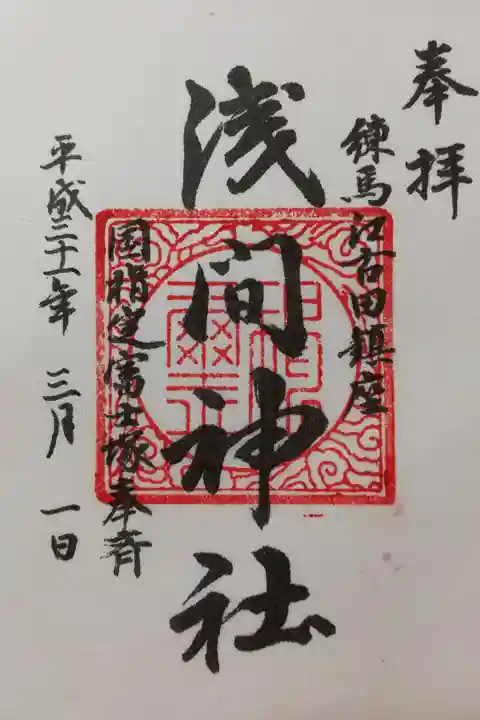 奉拝
練馬江古田鎮座
浅間神社
国指定富士塚奉斉
平成二十一年 三月 一日